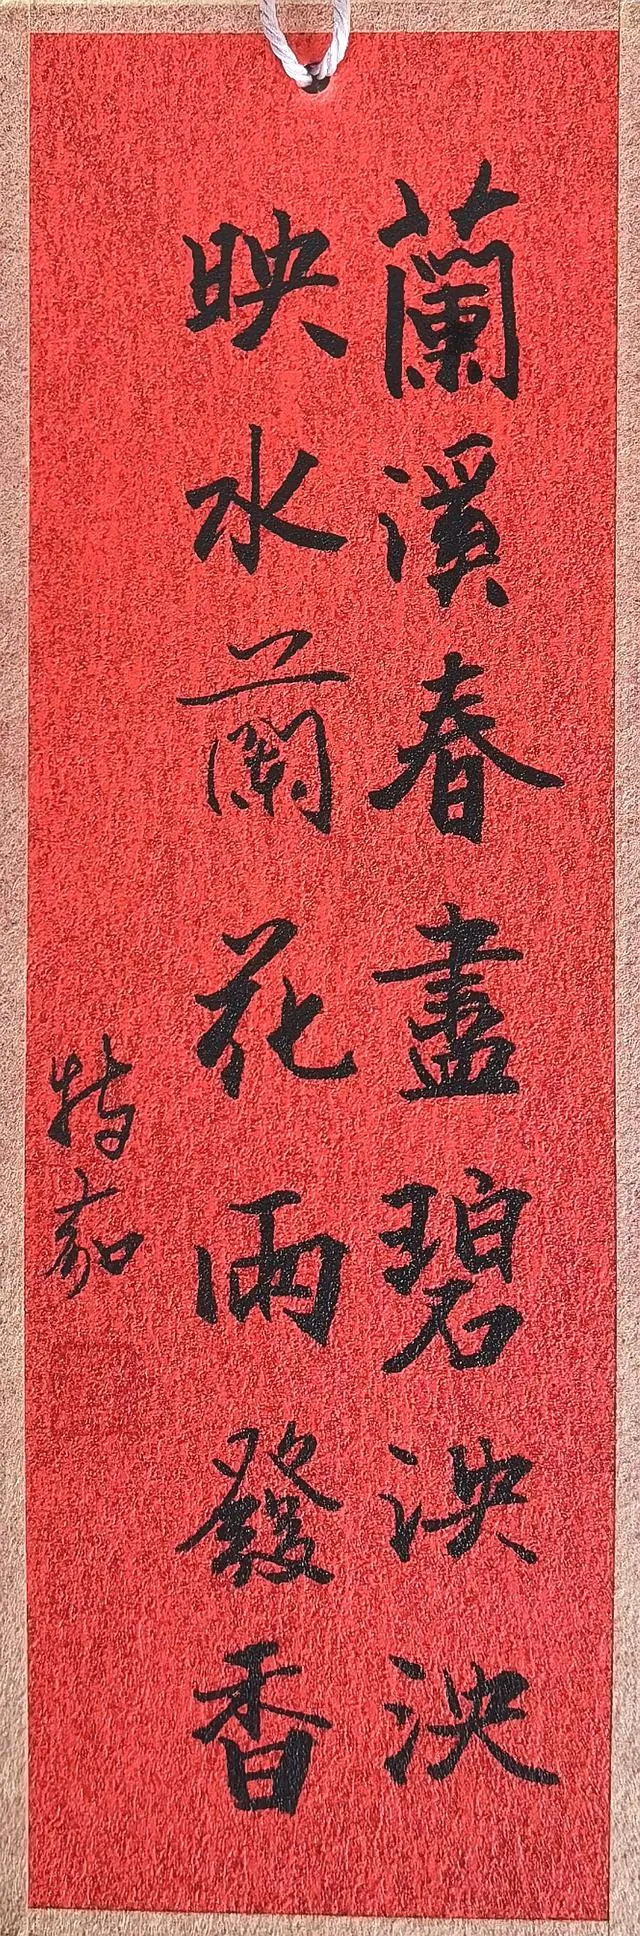 蘭溪春盡碧泱泱
映水蘭花雨發香
特嘉